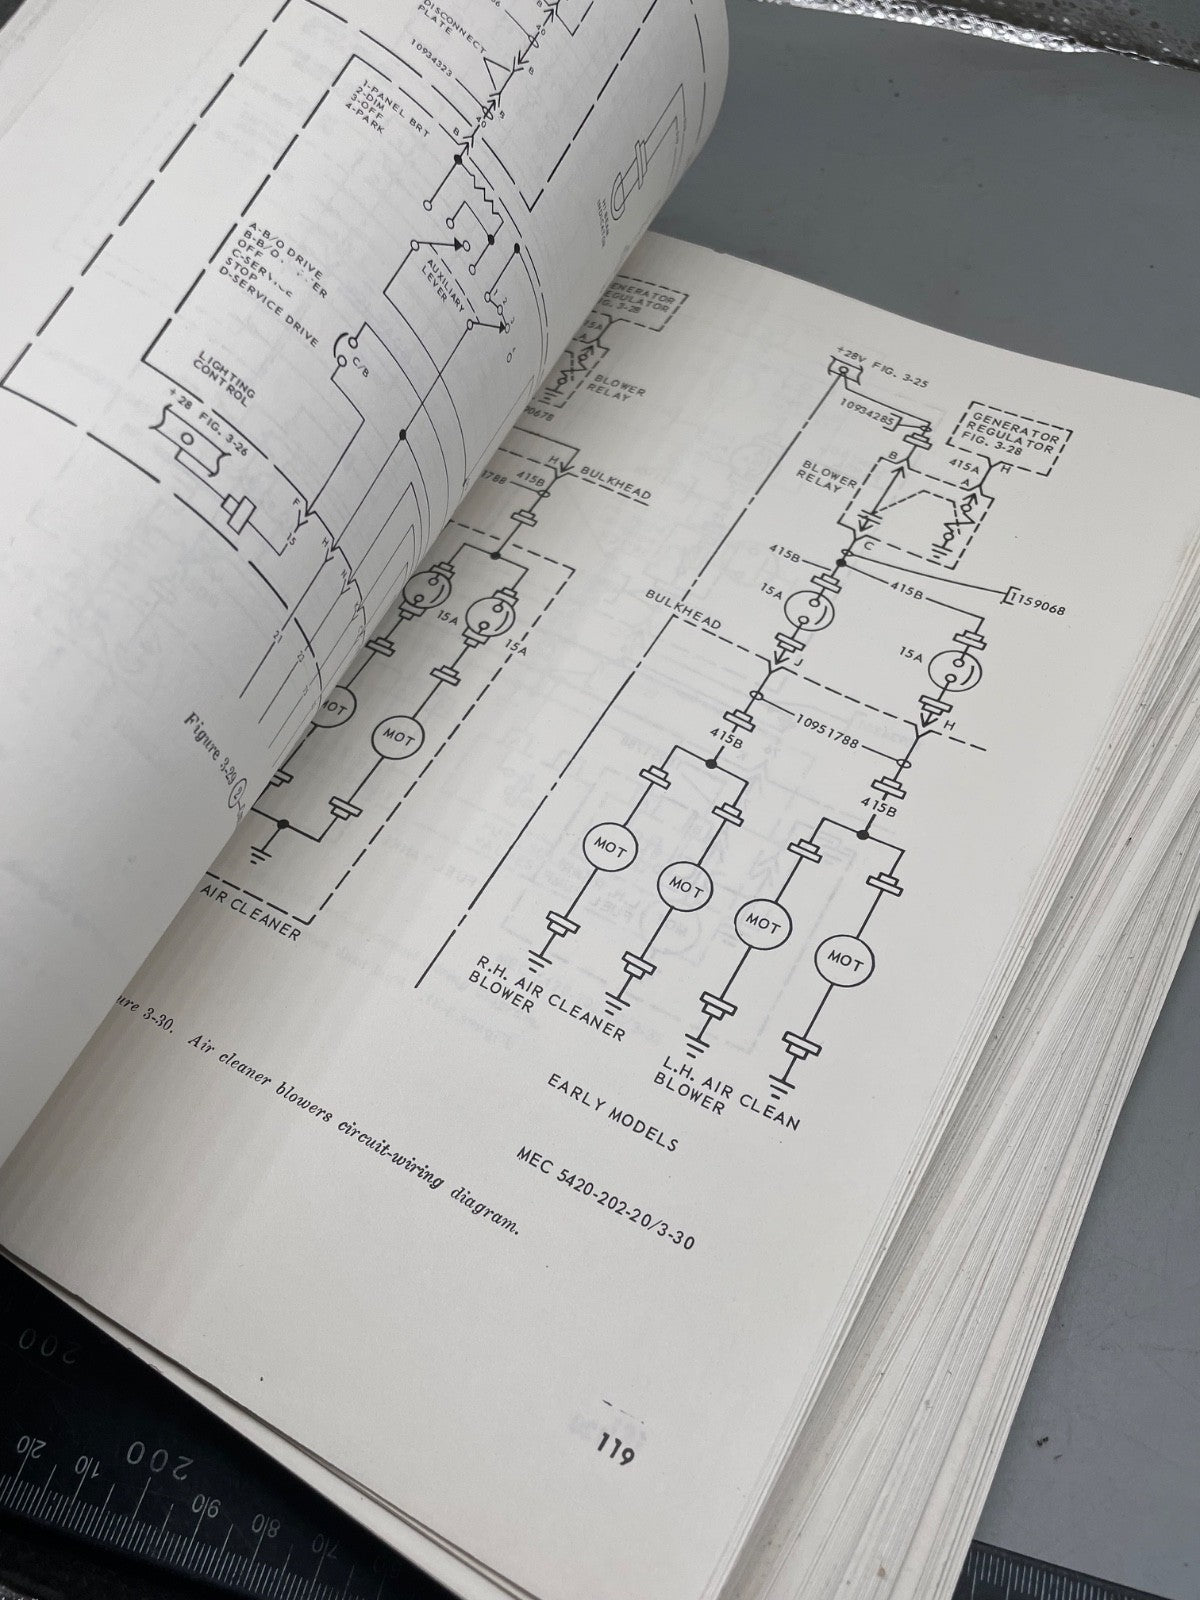 DISCONNECT
PLATE
10934323
B
40
B
40
B
B
1-PANEL BRT
2-DIM
3-OFF
4-PARK
A-B/O DRIVE
OFF
STOP
D-SERVICE DRIVE
AUXILIARY
LEVER
C/B
LIGHTING
CONTROL
+ 28 FIG. 3-26
F
15
H
21
Figure 3-29
FIG. 3-28
15A
A
BLOWER
RELAY
H
BULKHEAD
1788
415B
15A
15A
MOT
MOT
AIR CLEANER
+28V FIG. 3-25
10934285
GENERATOR
REGULATOR
FIG. 3-28
B
415A
H
A
BLOWER
RELAY
C
415B
415B
1159068
15A
15A
BULKHEAD
H
10951788
415B
415B
MOT
MOT
MOT
MOT
R.H. AIR CLEANER
BLOWER
L.H. AIR CLEAN
BLOWER
EARLY MODELS
MEC 5420-202-20/3-30
ure 3-30. Air cleaner blowers circuit-wiring diagram.
119
200
200